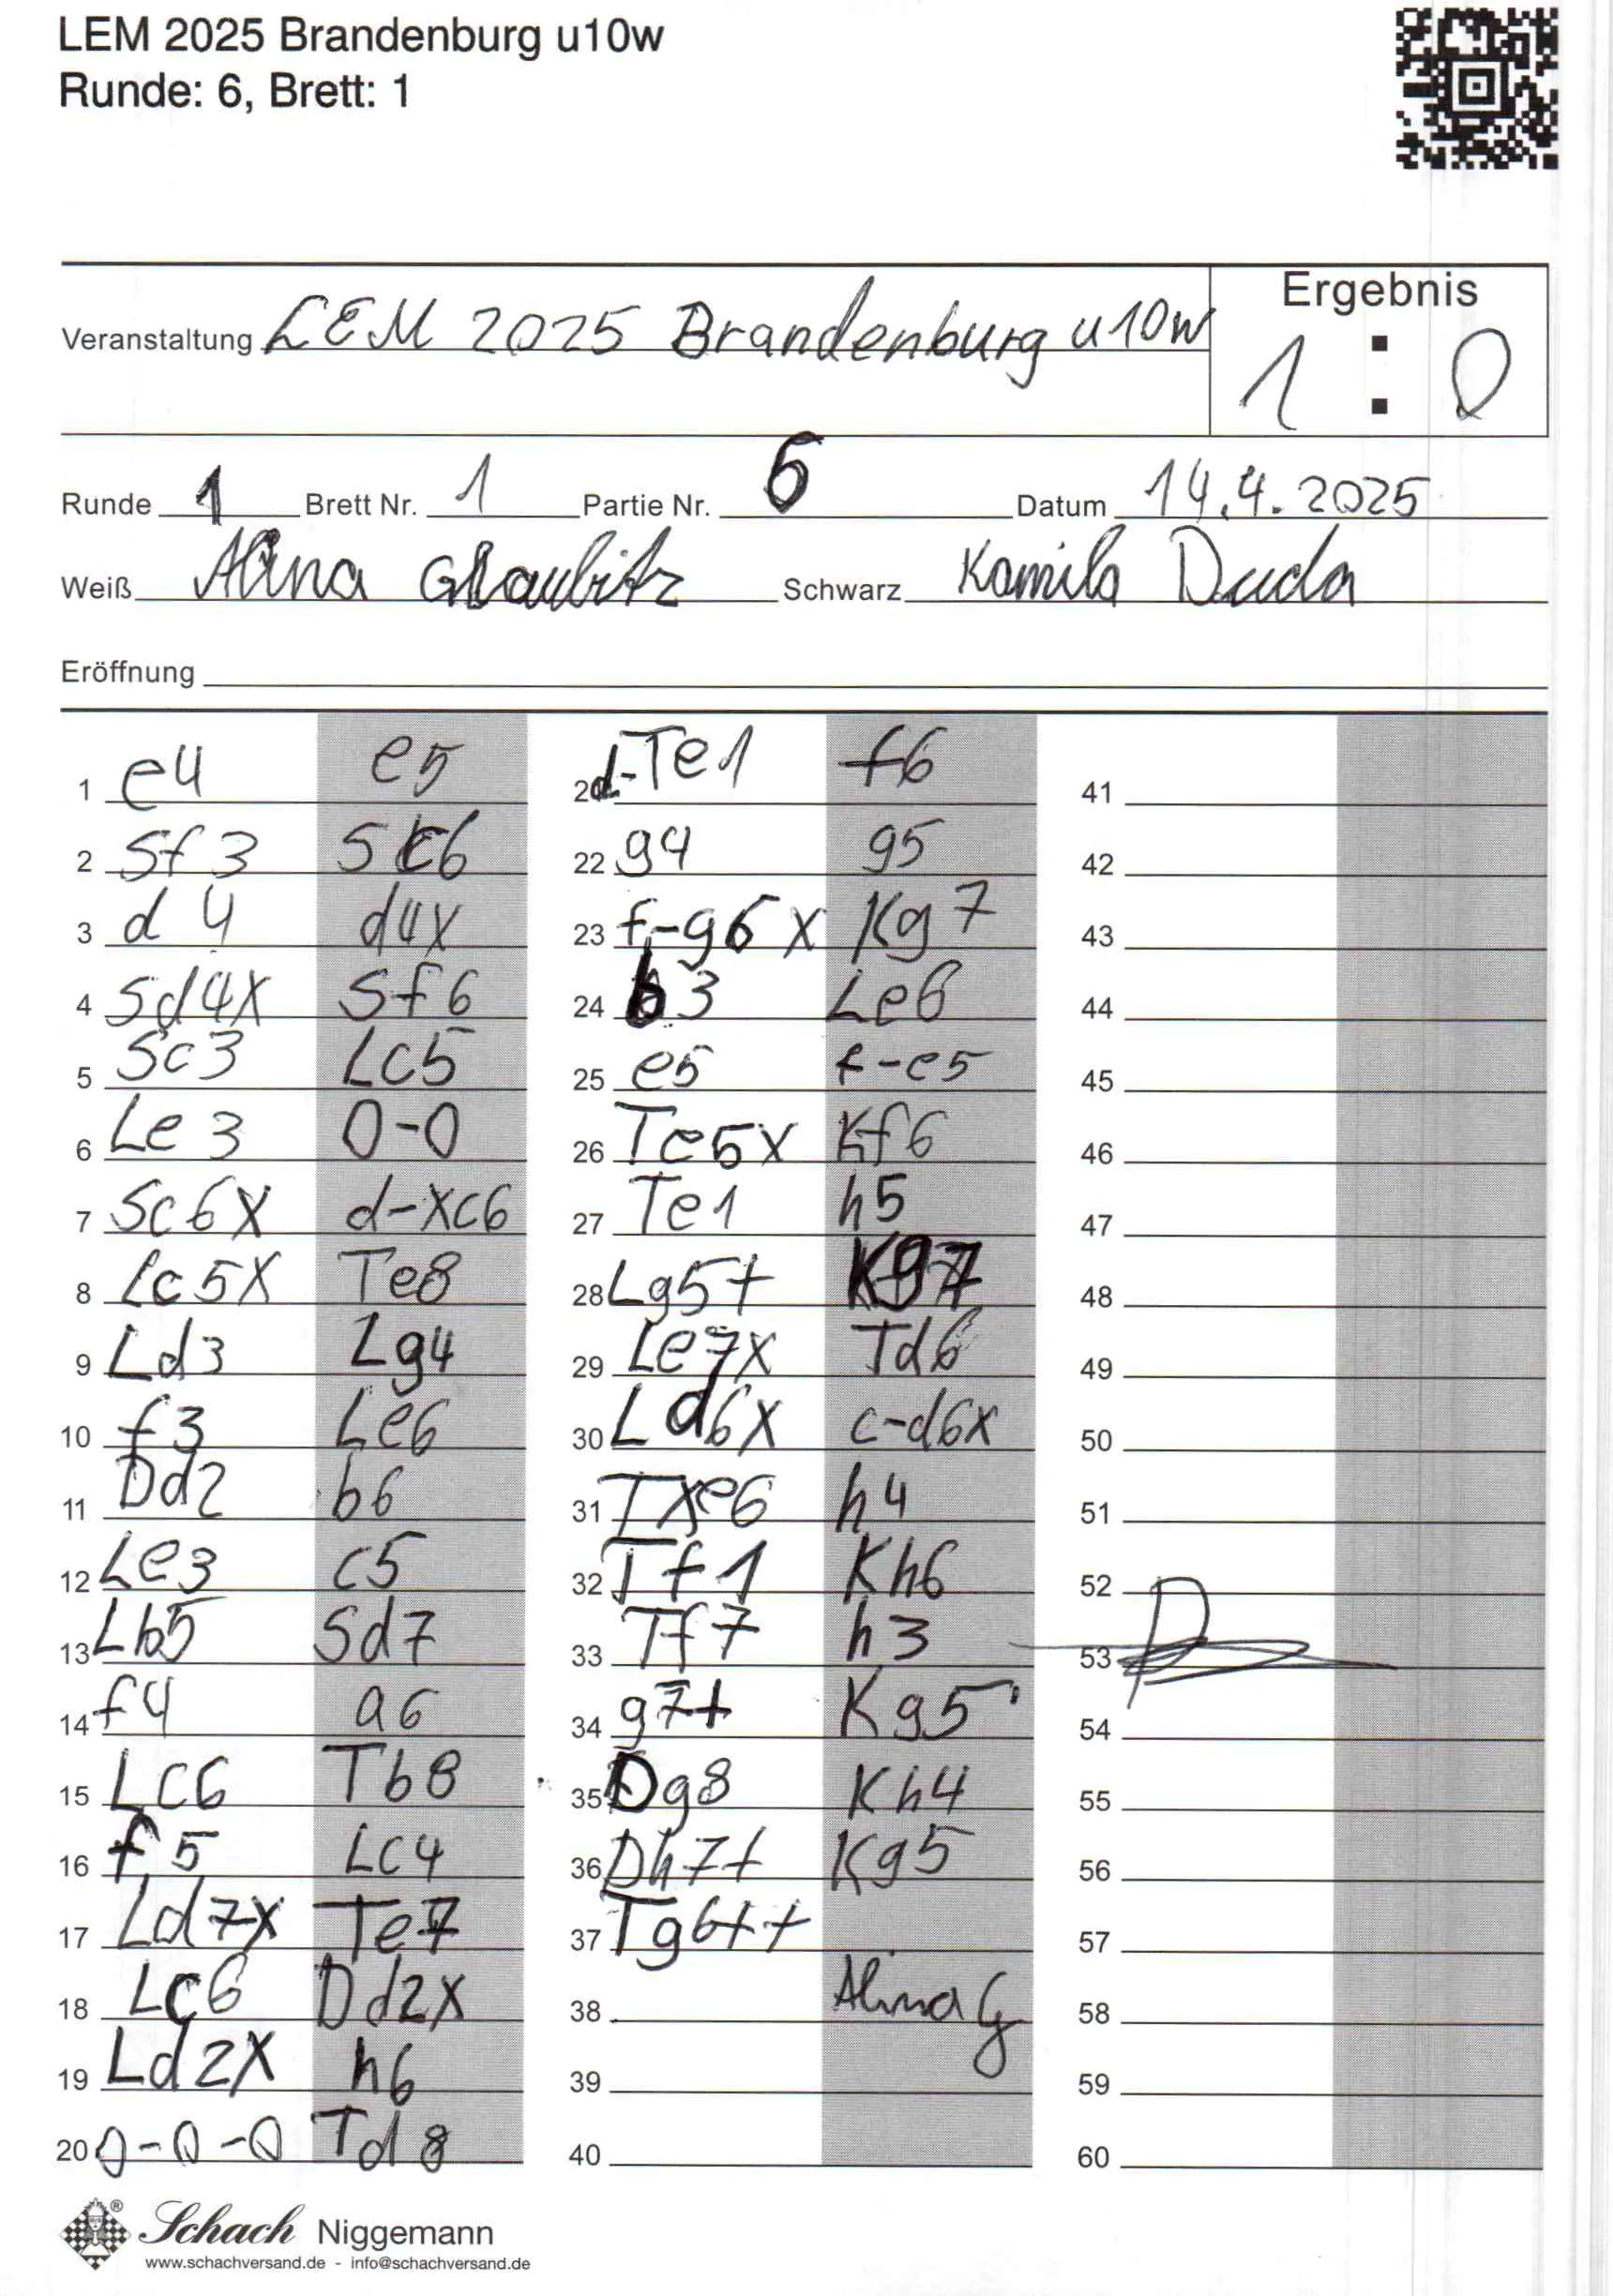 LEM 2025 Brandenburg u10w
Runde: 6, Brett: 1
Veranstaltung LEM 2025 Brandenburg u10w
Ergebnis
1 : 0
Runde 1 Brett Nr. 1 Partie Nr. 6 Datum 14.4.2025
Weiß Alina Glaubitz Schwarz Kamila Duda
Eröffnung
1 e4 e5
2 Sf3 Sc6
3 d4 d4x
4 Sd4x Sf6
5 Sc3 Lc5
6 Le3 0-0
7 Sc6x d-xc6
8 Lc5x Te8
9 Ld3 Lg4
10 f3 Le6
11 Dd2 b6
12 Le3 c5
13 Lb5 Sd7
14 f4 a6
15 Lc6 Tb8
16 f5 Lc4
17 Ld7x Te7
18 Lc6 Dd2x
19 Ld2x h6
20 0-0-0 Td8
d-Te1 f6
22 g4 g5
23 f-g6x Kg7
24 b3 Le6
25 e5 f-e5
26 Te5x Kf6
27 Te1 h5
28 Lg5+ Kg7
29 Le7x Td6
30 Ld6x c-d6x
31 Txe6 h4
32 Tf1 Kh6
33 Tf7 h3
34 g7+ Kg5
35 Dg8 Kh4
36 Dh7+ Kg5
37 Tg6++
38 Alina G
39
40
41
42
43
44
45
46
47
48
49
50
51
52
53
54
55
56
57
58
59
60
Schach Niggemann
www.schachversand.de - info@schachversand.de